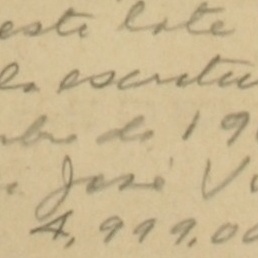 este lote
la escritu
bre do 19
José V
4,999.00